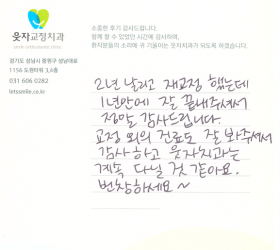 웃자교정치과
소중한 후기 감사드립니다.
함께 할 수 있었던 시간에 감사하며,
환자분들의 소리에 귀 기울이는 웃자치과가 되도록 하겠습니다.
경기도 성남시 중원구 성남대로
1156 도원타워 3,4층
031 606 0282
letssmile.co.kr
2년 날리고 재교정 했는데
1년만에 잘 끝내주셔서
정말 감사드립니다.
교정 외의 진료도 잘 봐주셔서
감사하고 웃자치과는
계속 다닐 것 같아요.
번창하세요~